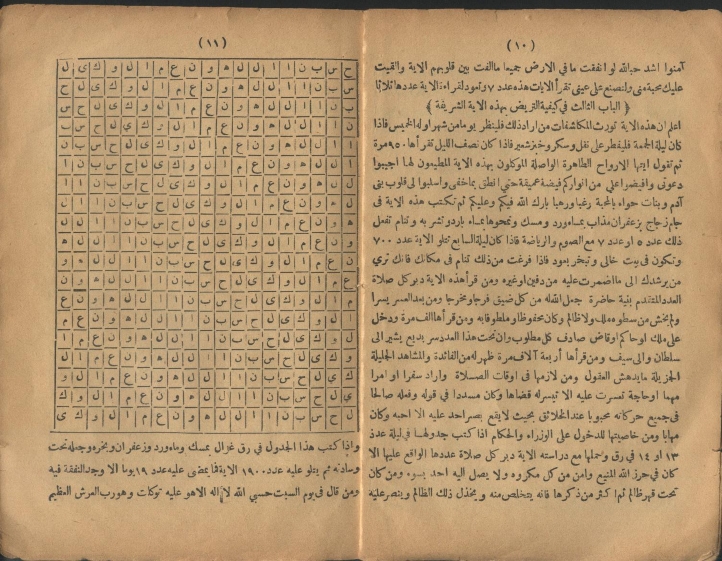 (١٠)
آمنوا اشد حبالله لو انفقت ما في الارض جميعا ماالفت بين قلوبهم الاية والقيت
عليك محبة منى ولتصنع على عينى تقرأ الايات هذه عدد ٧ وتعود لقراءة الاية عددها ثلاثا
﴿ الباب الثالث في كيفية التريض بهذه الاية الشريفة ﴾
اعلم ان هذه الاية تورث المكاشفات من اراد ذلك فلينظر يوما من شهر اوله الخميس فاذا
كان ليلة الجمعة فليفطر على نقل وسكر وخبز شعير فاذا كان نصف الليل تقرأها ٤٥٠ مرة
ثم تقول ايتها الارواح الطاهرة الواصلة الموكلون بهذه الاية المطيعون لها اجيبوا
دعوتى وافيضوا على من انواركم فيضة عميقة حتى انطق بما خفى واسلبوا الى قلوب بنى
آدم وبنات حواء بالمحبة رغبا ورهبا بارك الله فيكم وعليكم ثم تكتب هذه الاية فى
جام زجاج بزعفران مذاب بماء ورد ومسك وتمحوها بماء بارد وتشربه و تنام تفعل
ذلك عدد ٥ او عدد ٧ مع الصوم والرياضة فاذا كان ليلة السابع تتلو الاية عدد ٧٠٠
وتكون فى بيت خالى وتبخر بعود فاذا فرغت من ذلك تنام فى مكانك فانك ترى
من يرشدك الى ما اضمرت عليه من دفين اوغيره ومن قرأ هذه الاية دبر كل صلاة
العدد المتقدم بنية حاضرة جعل الله له من كل ضيق فرجا ومخرجا ومن بعد العسر يسرا
ولم يخش من سطوة ملك ولا ظالم وكان محفوظا وملطوفا به ومن قرأها الف مرة ودخل
على ملك او حاكم او قاض صادف كل مطلوب وان تحت هذا العدد سر بديع يشير الى
سلطان والى سيف ومن قرأها أربعة آلاف مرة ظهر له من الفائدة والمشاهد الجليلة
الجزيلة ما يدهش العقول ومن لازمها فى اوقات الصلاة واراد سفرا او امرا
مهما اوحاجة تعسرت عليه الا تيسر له قضاها وكان مسددا فى قوله وفعله صالحا
فى جميع حركاته محبوبا عند الخلائق بحيث لا يقع بصر احد عليه الا احبه وكان
مهابا ومن خاصيتها للدخول على الوزراء والحكام اذا كتب جدولها فى ليلة عدد
١٣ او ١٤ فى رق وحملها مع دراسته الاية دبر كل صلاة عددها الواقع عليها الا
كان فى حرز الله المنيع وامن من كل مكروه ولا يصل اليه احد بسوء ومن كان
تحت قهر ظالم ثم اكثر من ذكرها فانه يتخلص منه و يخذل ذلك الظالم وينصر عليه
(١١)
ح س ب ن ا ا ل ل ه و ن ع م ا ل و ك ى ل
س ب ن ا ا ل ل ه و ن ع م ا ل و ك ى ل ح
ب ن ا ا ل ل ه و ن ع م ا ل و ك ى ل ح س
ن ا ا ل ل ه و ن ع م ا ل و ك ى ل ح س ب
ا ا ل ل ه و ن ع م ا ل و ك ى ل ح س ب ن
ا ل ل ه و ن ع م ا ل و ك ى ل ح س ب ن ا
ل ل ه و ن ع م ا ل و ك ى ل ح س ب ن ا ا
ل ه و ن ع م ا ل و ك ى ل ح س ب ن ا ا ل
ه و ن ع م ا ل و ك ى ل ح س ب ن ا ا ل ل
و ن ع م ا ل و ك ى ل ح س ب ن ا ا ل ل ه
ن ع م ا ل و ك ى ل ح س ب ن ا ا ل ل ه و
ع م ا ل و ك ى ل ح س ب ن ا ا ل ل ه و ن
م ا ل و ك ى ل ح س ب ن ا ا ل ل ه و ن ع
ا ل و ك ى ل ح س ب ن ا ا ل ل ه و ن ع م
ل و ك ى ل ح س ب ن ا ا ل ل ه و ن ع م ا
و ك ى ل ح س ب ن ا ا ل ل ه و ن ع م ا ل
ك ى ل ح س ب ن ا ا ل ل ه و ن ع م ا ل و
ى ل ح س ب ن ا ا ل ل ه و ن ع م ا ل و ك
ل ح س ب ن ا ا ل ل ه و ن ع م ا ل و ك ى
واذا كتب هذا الجدول فى رق غزال بمسك وماء ورد وزعفران وبخره وجعله تحت
وسادته ثم يتلو عليه عدد ١٩٠٠ الاية فما يمضى عليه عدد ١٩ يوما الا وجد النفقة فيه
ومن قال فى يوم السبت حسبي الله لا اله الاهو عليه توكلت وهو رب العرش العظيم